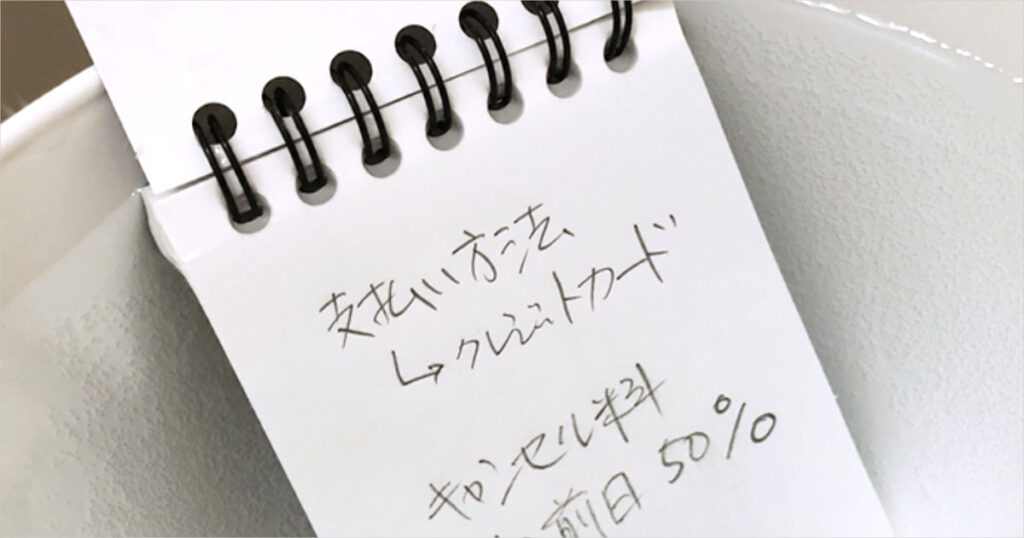 支払い方法
↳クレジットカード
キャンセル料
前日 50%